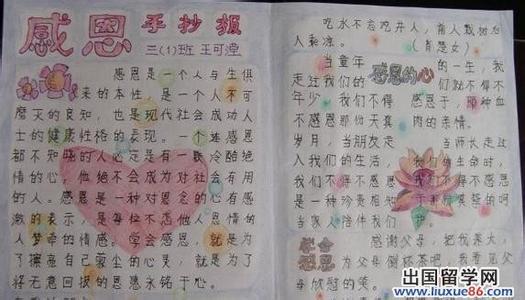 感恩 手抄报
三(1)班 王可
感恩是一个人与生俱
来的本性，是一个人不可
磨灭的良知，也是现代社会成功人
士的健康性格的表现。一个连感恩
都不知晓的人必定是有一颗冷酷绝
情的心。他绝不会成为对社会有用
的人。感恩是一种对恩的心有感
激的表示，是每位不忘他人恩情的
人梦的情感。学会感恩，就是为
了擦亮自己蒙尘的心灵，就是为了
将无意回报的恩惠永铭于心。
吃水不忘吃井人，前人栽树后
人乘凉。(肖楚女)
感恩的心
当童年
走过我们的
年少 我们不得
不感恩那份天真
岁月，当朋友走
入我们的生活，
我们不得不感恩
是一种珍贵相
当家人陪伴我们
的一生，我
们就不得不
感恩于，那种血
肉的亲情。
当师长走过
我们的生命时，
我们不得不感恩
于那份
学会感恩
感谢父母，把我养大，
为父母倒杯茶吧，我
父母欣慰的笑。
出国留学网
www.liuxue86.com